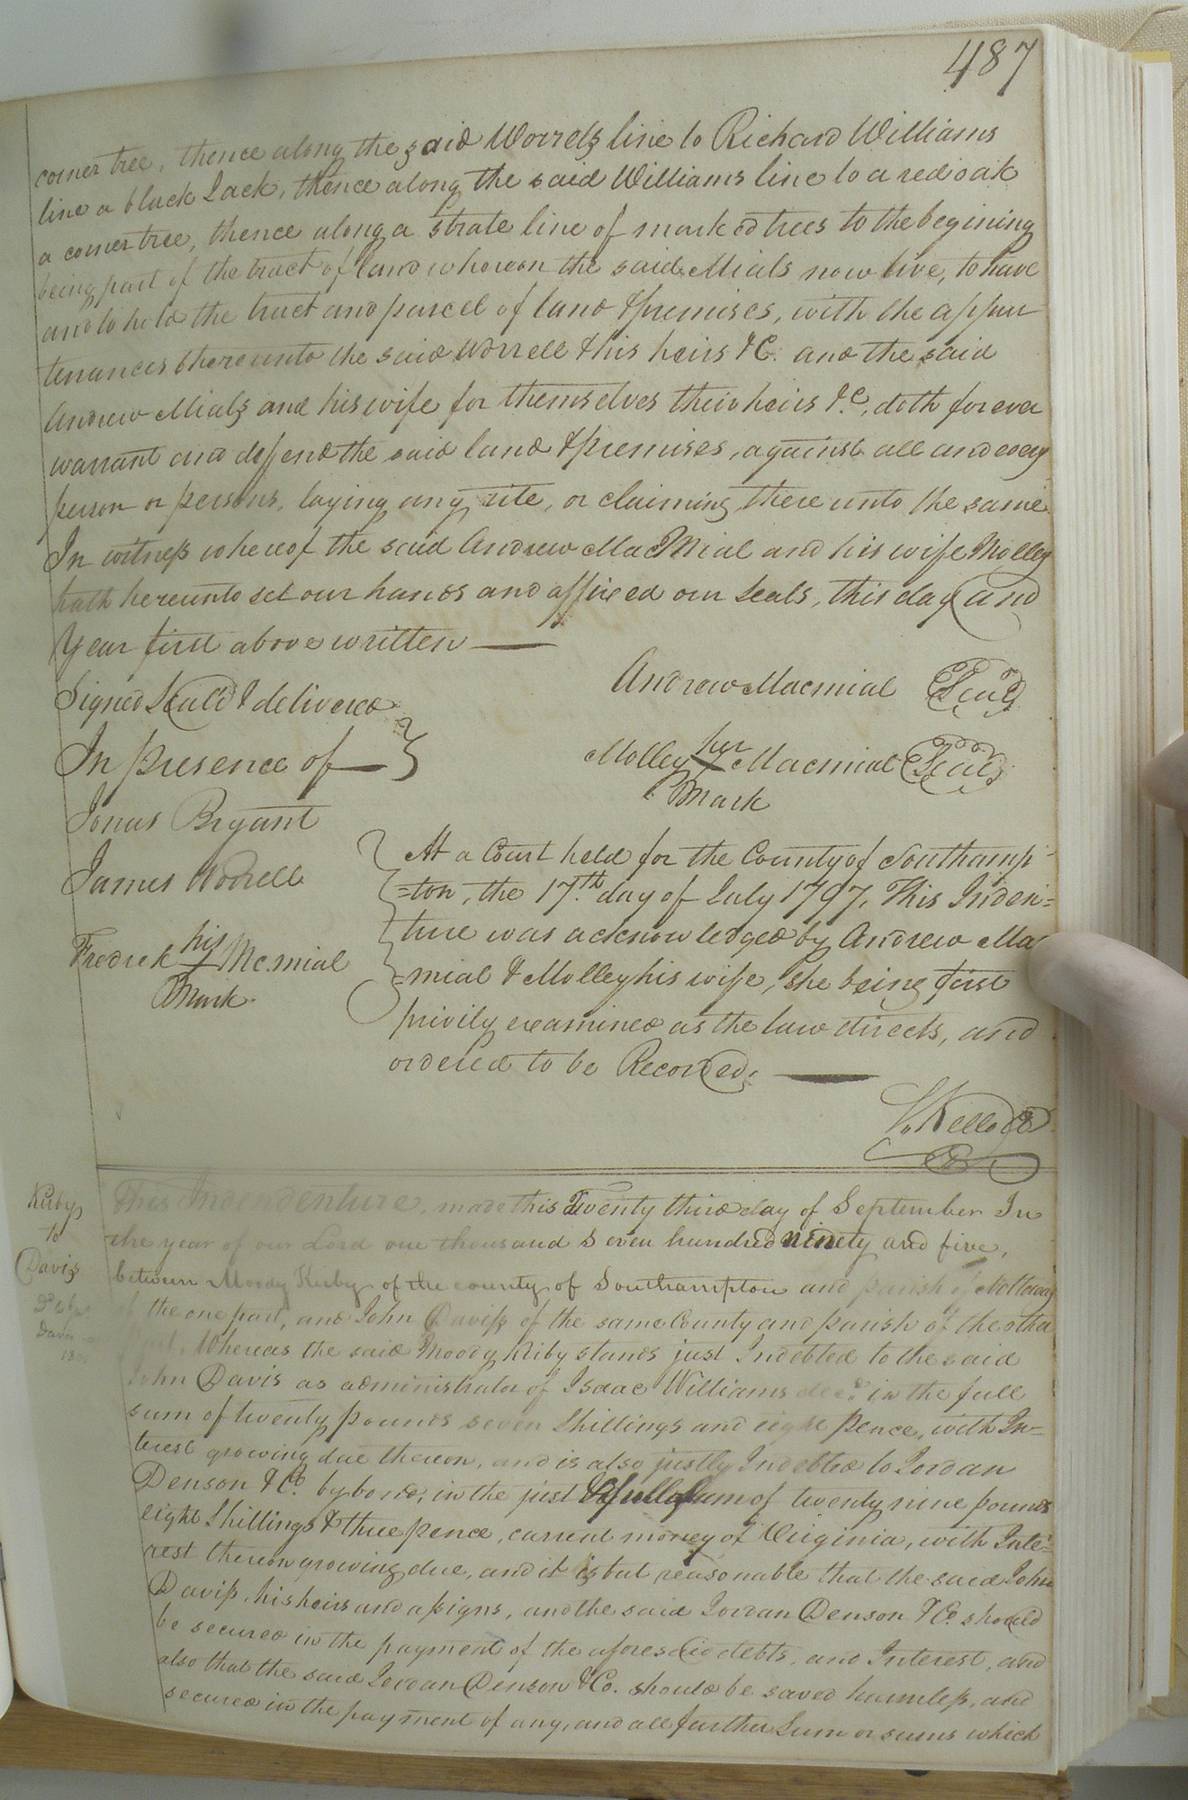 487
corner tree, thence along the said Worrels line to Richard Williams
line a black Jack, thence along the said Williams line to a red oak
a corner tree, thence along a strate line of marked trees to the begining
being part of the tract of land whereon the said Mials now live, to have
and to hold the tract and parcel of land & premises, with the appur-
tenances thereunto the said Worrell & his heirs &C. and the said
Andrew Mials and his wife for themselves their heirs &c, doth forever
warrant and deffend the said land & premises, against all and every
person or persons, laying any rite, or claiming there unto the same
In witness whereof the said Andrew MacMial and his wife Molley
hath hereunto set our hands and affixed our Seals, this day and
Year first above written —
Signed Seald & delivered
In presence of —
Andrew Macmial Seal
Molley her Macmial Seal
Mark
Jonas Bryant
James Worrell
Fredrck his Mc.mial
Mark
At a Court held for the County of Southamp-
=ton, the 17th day of July 1797, This Inden=
ture was acknowledged by Andrew Mac
=mial & Molley his wife, she being first
privily examined as the law directs, and
ordered to be Recorded. —
S. Kello CC
Kirby
to
Davis
This Indendenture, made this Twenty third day of September In
the year of our Lord one thousand Seven hundred ninety and five,
between Moody Kirby of the county of Southampton and parish of Nottoway
of the one part, and John Daviss of the same County and parish of the other
part. Whereas the said Moody Kirby stands just Indebted to the said
John Davis as administrator of Isaac Williams decd. in the full
sum of twenty pounds seven Shillings and eight pence, with In=
terest growing due thereon, and is also justly Indebted to Jordan
Denson & Co. by bond, in the just & full sum of twenty nine pounds
eight Shillings & three pence, current money of Virginia, with Inte=
rest thereon growing due, and it is but reasonable that the said John
Daviss, his heirs and assigns, and the said Jordan Denson & Co should
be secured in the payment of the aforesaid debts, and Interest, and
also that the said Jordan Denson & Co. should be saved harmless, and
secured in the payment of any, and all further Sum or sums which